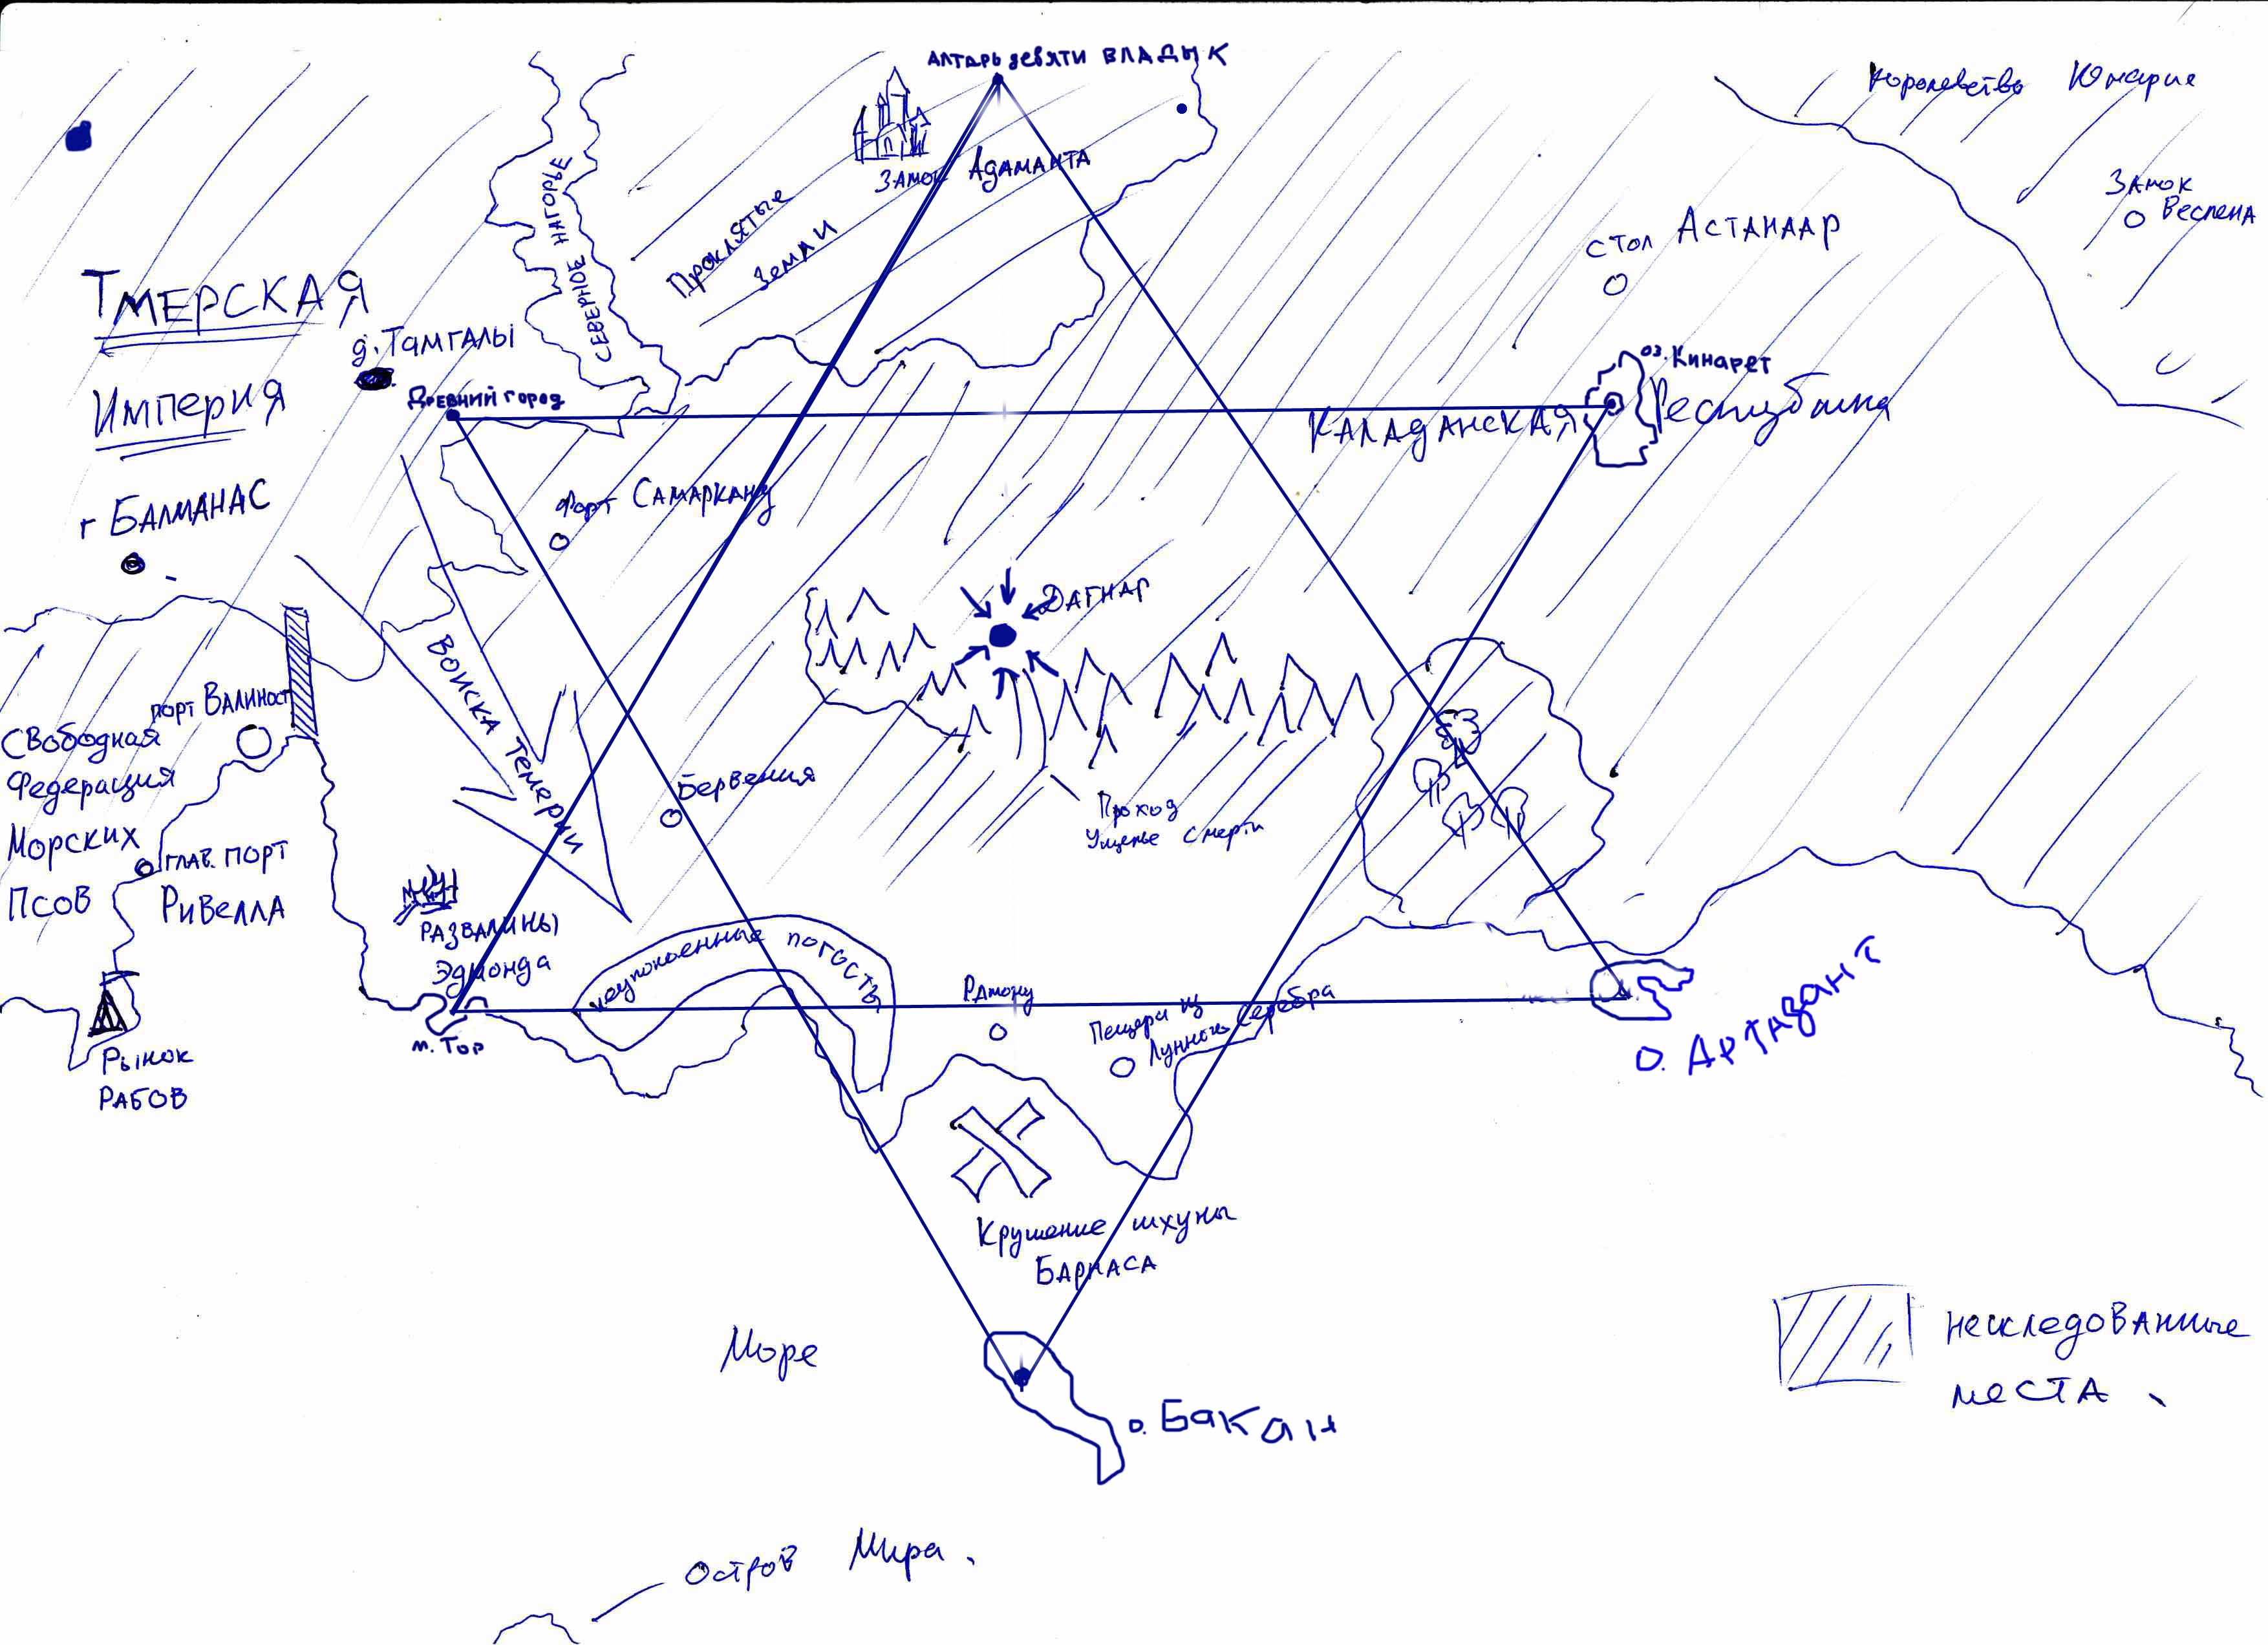 АЛТАРЬ девяти ВЛАДЫК
Королевство Юнария
ЗАМОК АДАМАНТА
Проклятые
Земли
СЕВЕРНОЕ НАГОРЬЕ
ЗАМОК
Веспена
СТОЛ АСТАНААР
ТМЕРСКАЯ
Империя
д. ТАМГАЛЫ
ДРЕВНИЙ ГОРОД
оз. Кинарет
КАЛАДАНСКАЯ Республика
г БАЛМАНАС
Форт САМАРКАНД
ДАГНАР
ВОЙСКА ТЕМЕРИИ
порт ВАЛИНОСТ
Свободная
Федерация
Морских
Псов
Бервения
Проход
Ущелье Смерти
ГЛАВ. ПОРТ
РИВЕЛЛА
РАЗВАЛИНЫ
Эдмонда
неупокоенные погосты
м. Тор
Рамону
Пещеры из
Лунного Серебра
о. Артазант
Рынок
РАБОВ
Крушение шхуны
БАРНАСА
Море
о. Бакан
нескледованные
места
остров Мира.